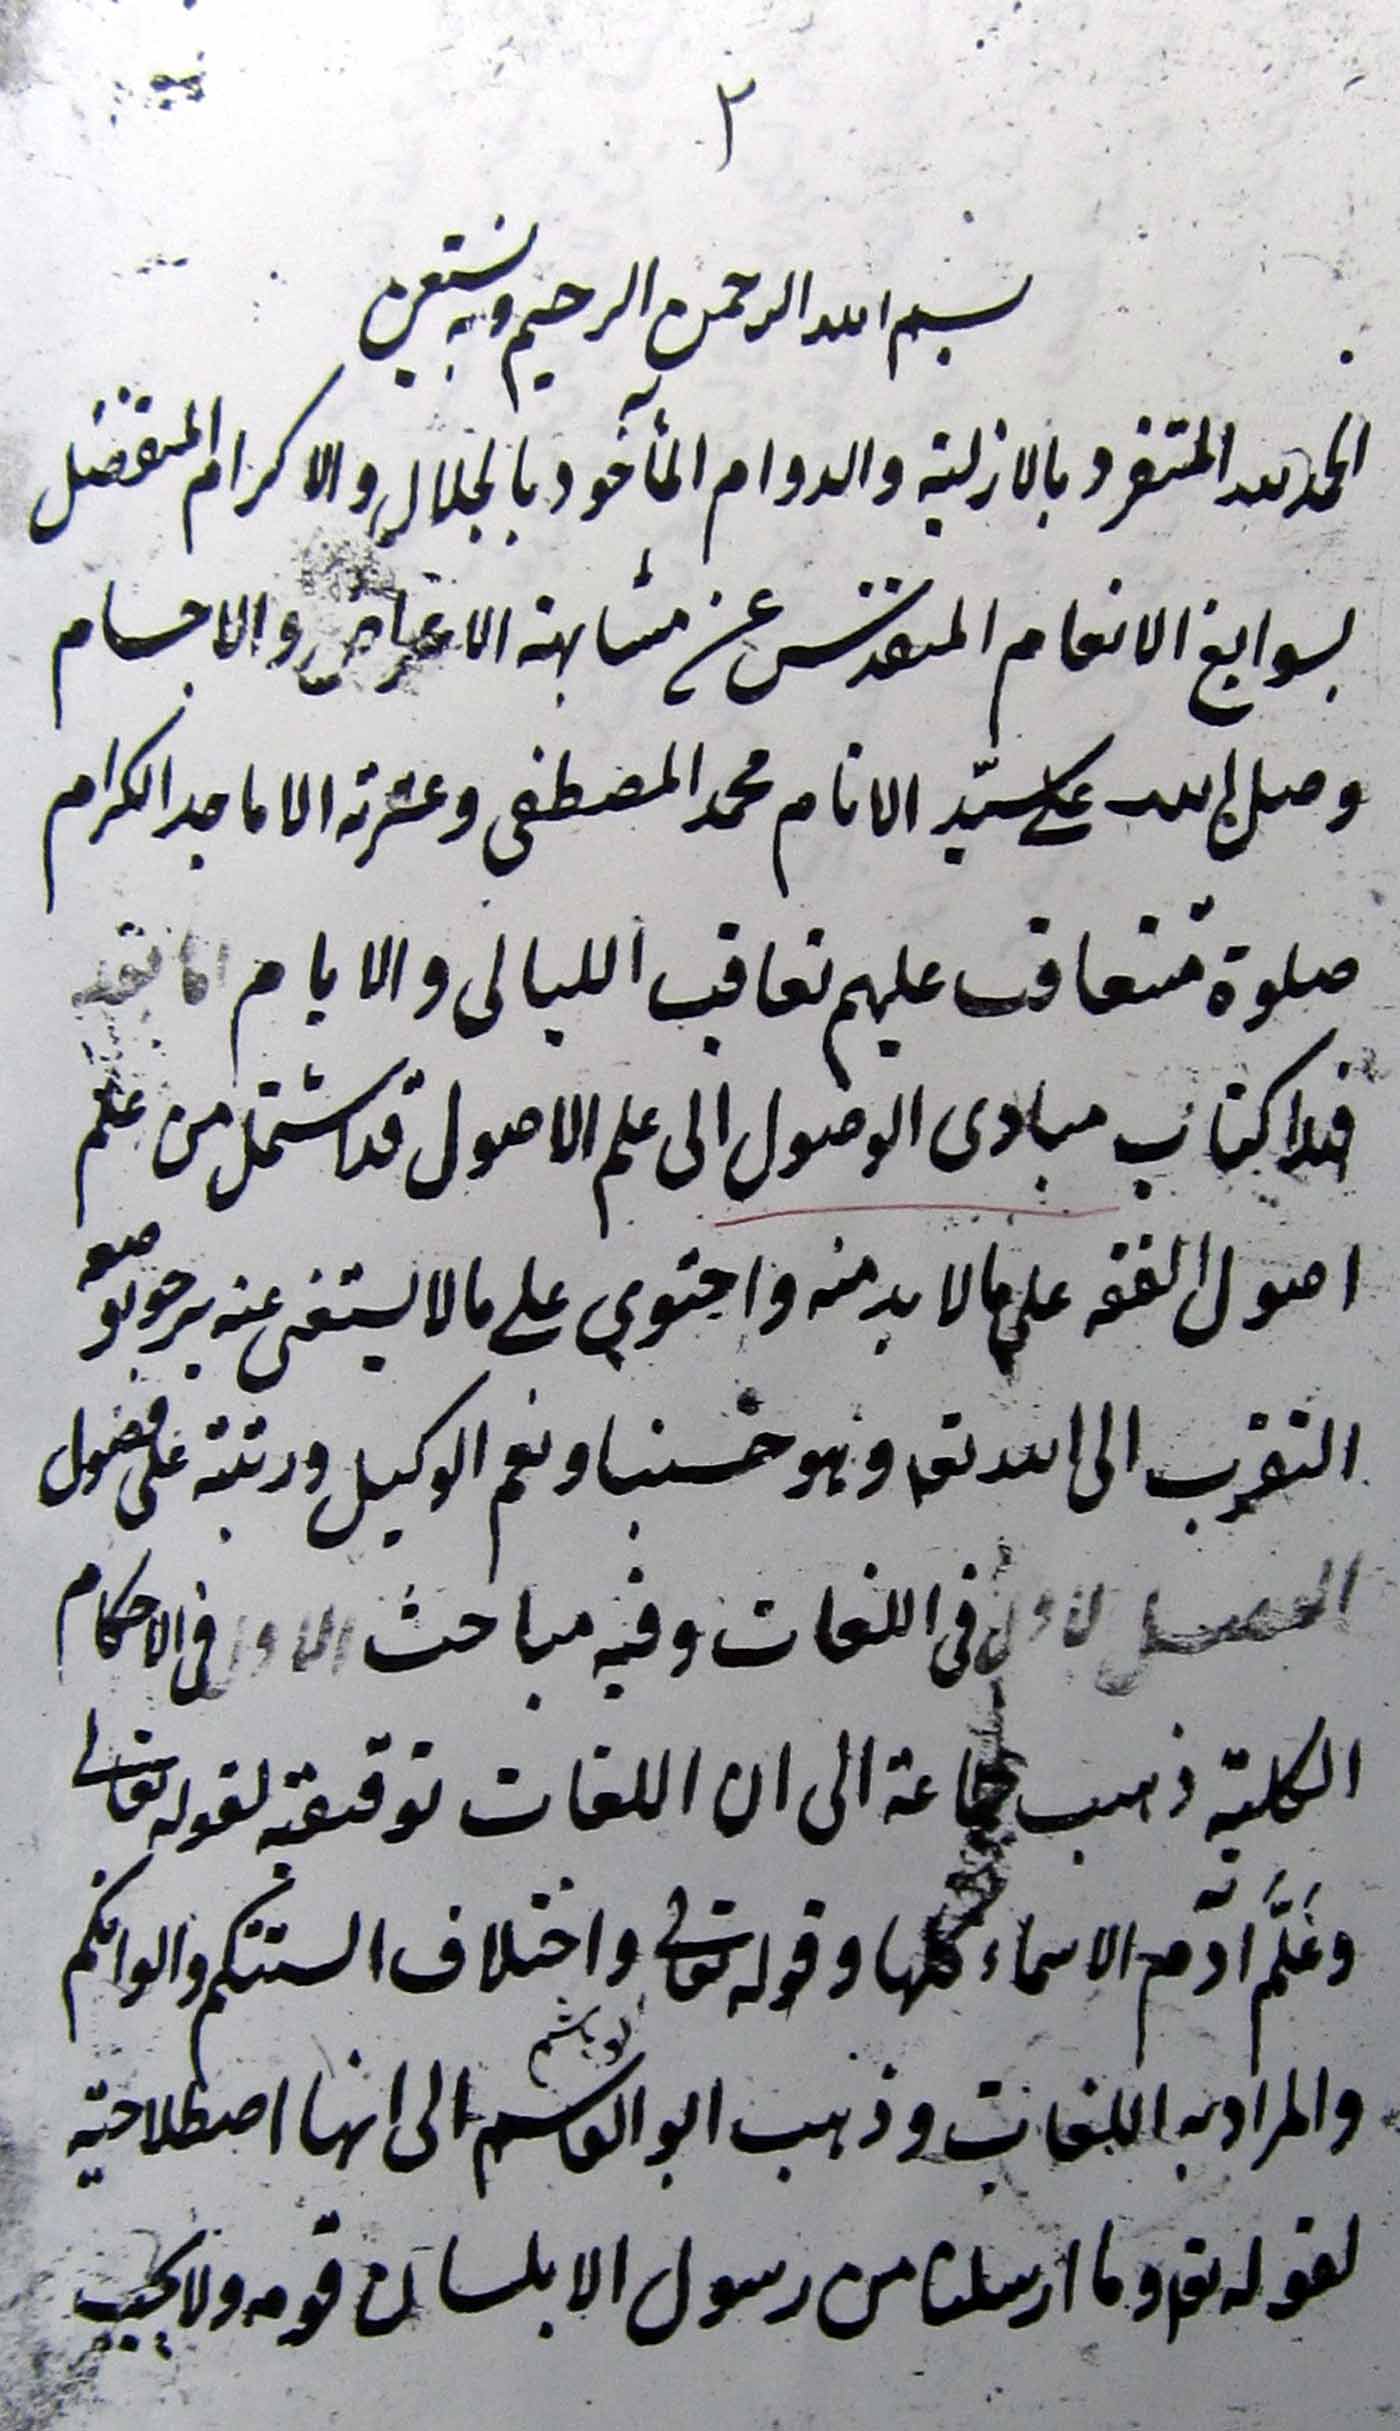 ٢
بسم الله الرحمن الرحيم وبه نستعين
الحمد لله المتفرد بالازلية والدوام المتأخود بالجلال والاكرام المتفضل
بسوابغ الانعام المتقدس عن مشابهة الاعراض والاجسام
وصلى الله على سيّد الانام محمد المصطفى وعترته الاماجد الكرام
صلوة تتعاقب عليهم تعاقب الليالى والايام اما بعد
فهذا كتاب مبادى الوصول الى علم الاصول قد اشتمل من علم
اصول الفقه على ما لا بد منه واحتوى على ما لا يستغنى عنه نرجو بوضعه
التقرب الى الله تعه وهو حسبنا ونعم الوكيل ورتبته على فصول
الفصل الاول فى اللغات وفيه مباحث الاول فى الاحكام
الكلية ذهب جماعة الى ان اللغات توقيفية لقوله تعالى
وعَلَّمَ ادم الاسماء كلها وقوله تعالى واختلاف السنتكم والوانكم
والمراد به اللغات وذهب ابو القاسم الى انها اصطلاحية
ابو هاشم
لقوله تعه وما ارسلنا من رسول الا بلسان قومه ولا يجب